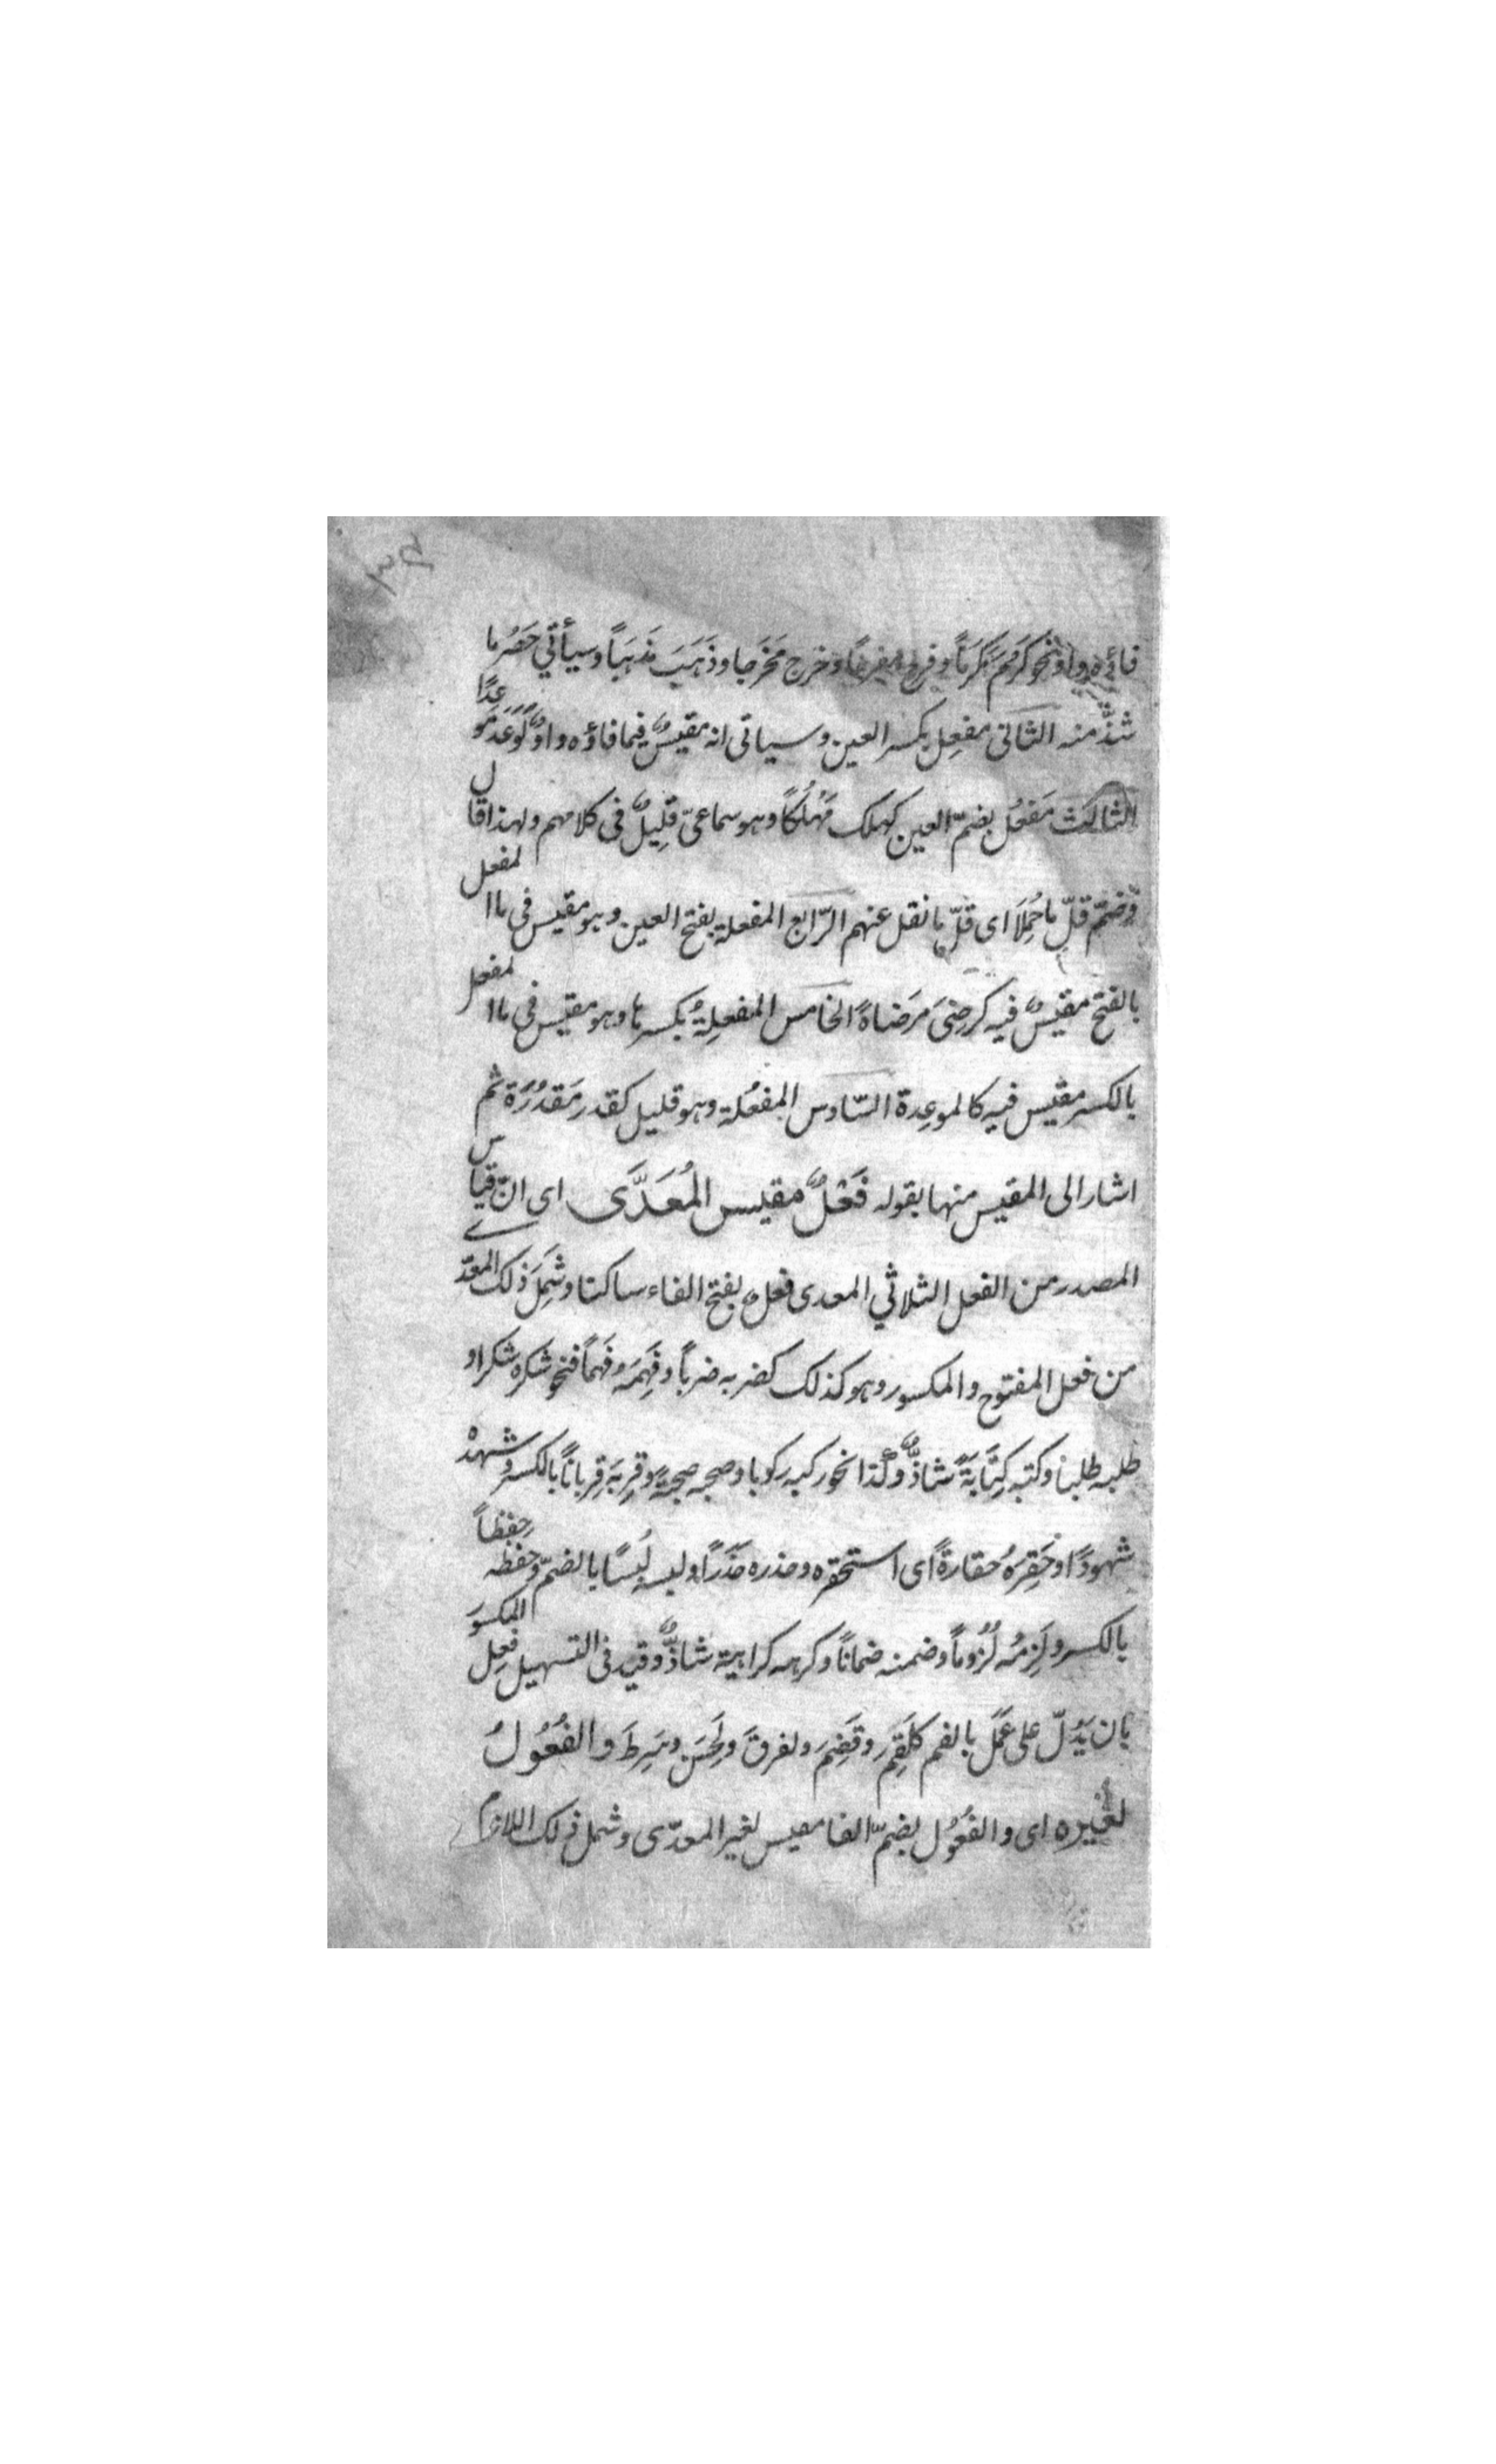 فاؤه واو نحو كَرُمَ مَكْرَماً وفرح مفرحاً وخرج مَخْرَجا وذَهَبَ مَذْهَباً وسيأتي حَصْرُ ما
شذّ منه الثانى مفعِل بكسر العين وسياتى انه مقيسٌ فيما فاؤه واوٌ كَوَعَدَ مَوعِدًا
الثالث مَفعُل بضمّ العين كهلك مَهْلُكاً وهو سماعىّ قَلِيلٌ فى كلامهم ولهذا قال
وَضَمّ قلّ ما حُمِلَا اى قلّ ما نقل عنهم الرّابع المفعلة بفتح العين وهو مقيس فى ما المفعل
بالفتح مقيسٌ فيه كرضِىَ مَرضاةً الخامس المفعِلةُ بكسرها وهو مقيس فى ما المفعل
بالكسر مقيس فيه كالموعِدة السّادس المفعُلة وهو قليل كقدر مَقدُرَة ثم
اشار الى المقيس منها بقوله فَعْلٌ مقيس المُعَدَّى اى انّ قياس
المصدر من الفعل الثلاثي المعدى فعل بفتح الفاء ساكنا وشَمِلَ ذلك المعدّى
من فعل المفتوح والمكسور وهو كذلك كضربه ضرباً وفَهِمَه فَهماً فنحو شكره شكرا و
طلبه طلبا وكتبه كِتَابَةً شاذٌّ وكذا نحو ركبه ركوبا وصحبه صحبةً وقَرِبَه قِرباناً بالكسر وشهده
شهودًا وحَقِرَهُ حقارةً اى استحقره وحذره حَذَرًا ولبسه لُبسًا بالضمّ وحفظه حِفظاً
بالكسر ولَزِمَه لُزُوماً وضمنه ضماناً وكرهه كراهية شاذٌّ وقيد فى التسهيل فَعِل المكسور
بان يَدُلّ على عَمَلٍ بالفم كلَقِمَ وقَضِمَ ولَحِسَ وسَرِطَ والفُعُولُ
لغيره اى والفُعُول بضمّ الفا مقيس لغير المعدّى وشمل ذلك اللازم